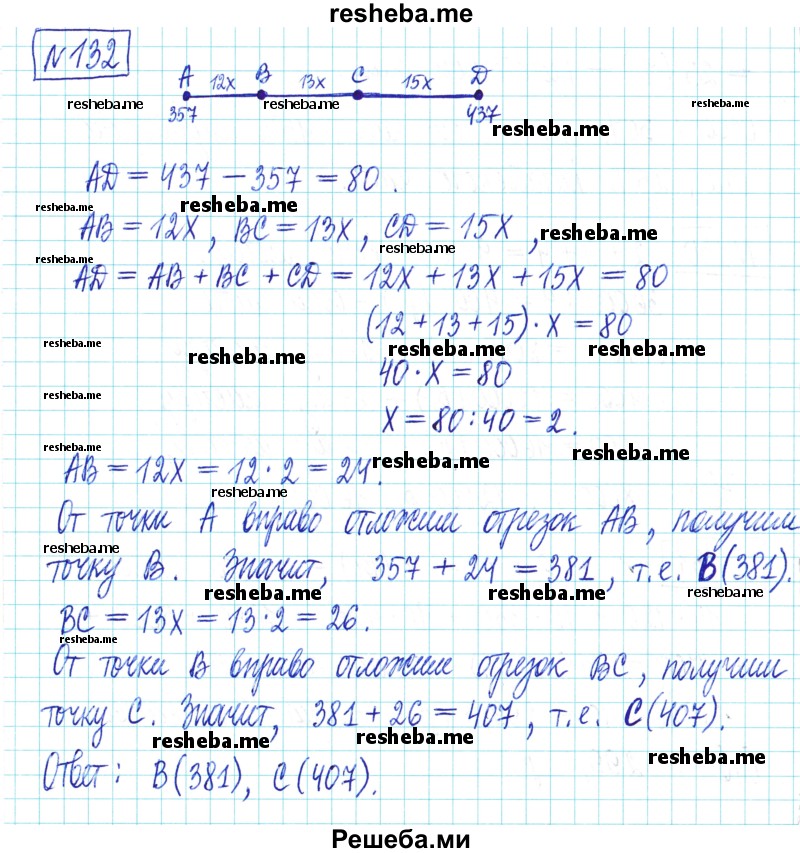 resheba.me
№132
A 12x B 13x C 15x D
resheba.me resheba.me resheba.me
357 437
resheba.me
AD = 437 - 357 = 80.
resheba.me resheba.me
AB = 12x, BC = 13x, CD = 15x, resheba.me
resheba.me resheba.me
AD = AB + BC + CD = 12x + 13x + 15x = 80
(12 + 13 + 15) · x = 80
resheba.me resheba.me resheba.me resheba.me
40 · x = 80
resheba.me
x = 80 : 40 = 2.
resheba.me resheba.me
AB = 12x = 12 · 2 = 24. resheba.me
resheba.me
От точки A вправо отложим отрезок AB, получим
resheba.me
точку B. Значит, 357 + 24 = 381, т.е. B(381).
resheba.me resheba.me resheba.me
BC = 13x = 13 · 2 = 26.
resheba.me
От точки B вправо отложим отрезок BC, получим
точку C. Значит, 381 + 26 = 407, т.е. C(407).
resheba.me resheba.me resheba.me
Ответ: B(381), C(407).
Решеба.ми